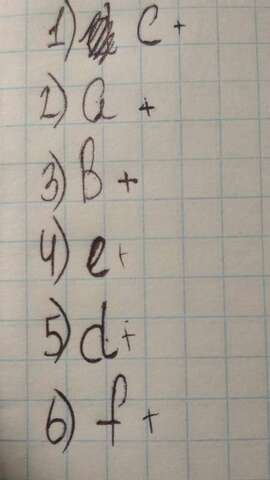 1) c +
2) a +
3) b +
4) e +
5) d +
6) f +